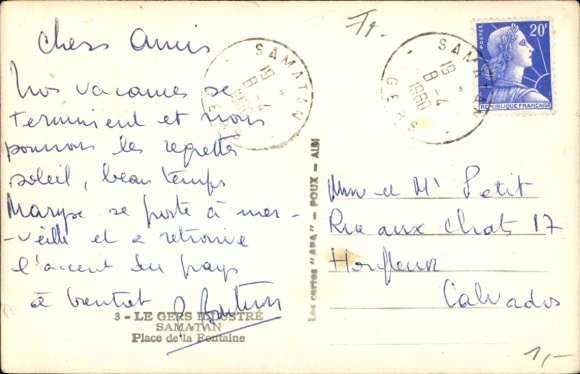 chers Amis
Nos vacances se
terminent et nous
pouvons les regretter
soleil, beau temps
Maryse se porte à mer-
-veille et a retrouvé
l'accent du pays
à bientôt
3 - LE GERS ILLUSTRÉ
SAMATAN
Place de la Fontaine
Les cartes "APA" - POUX - ALBI
SAMATAN
19 H
8-4
1960
GERS
SAMATAN
19 H
8-4
1960
GERS
POSTES
20F
REPUBLIQUE FRANÇAISE
Mme et Mr Petit
Rue aux chats 17
Honfleur
Calvados
1,-